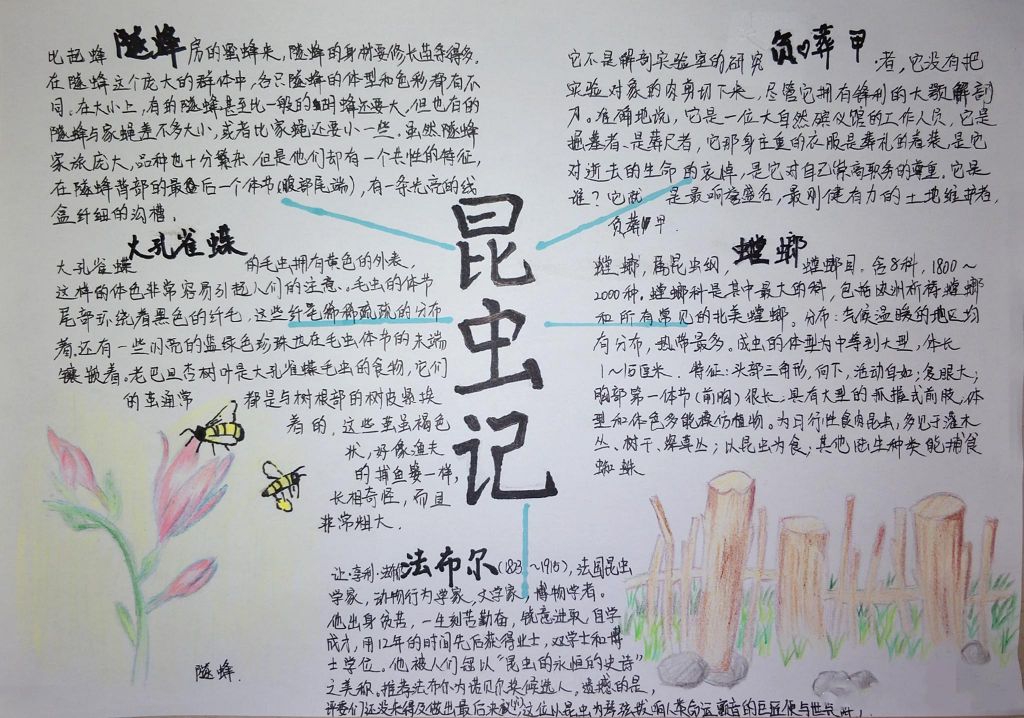 隧蜂
比起蜂房的蜜蜂来，隧蜂的身材要修长苗条得多，
在隧蜂这个庞大的群体中，各只隧蜂的体型和色彩都有不
同。在大小上，有的隧蜂甚至比一般的蜂还要大，但也有的
隧蜂与家蝇差不多大小，或者比家蝇还要小一些。虽然隧蜂
家族庞大，品种也十分繁杂，但是他们却有一个共性的特征，
在隧蜂背部的最后一个体节(腹部尾端)，有一条光亮的线
盒纤细的沟槽。
大孔雀蝶
大孔雀蝶的毛虫拥有黄色的外表，
这样的体色非常容易引起人们的注意。毛虫的体节
尾部环绕着黑色的纤毛，这些纤毛稀稀疏疏的分布
着，还有一些闪亮的蓝绿色珍珠边在毛虫体节的末端
镶嵌着。老巴旦杏树叶是大孔雀蝶毛虫的食物，它们
的茧通常都是与树根部的树皮紧挨
着的，这些茧虽褐色
状，好像渔夫
的捕鱼篓一样，
长相奇怪，而且
非常粗大。
隧蜂.
昆虫记
负葬甲
它不是解剖实验室的研究者，它没有把
实验对象的肉剪切下来，尽管它拥有锋利的大颚解剖
刀。准确地说，它是一位大自然殡仪馆的工作人员，它是
掘墓者、是葬尸者，它那身庄重的衣服是葬礼的着装，是它
对逝去的生命的哀悼，是它对自己崇高职务的尊重。它是
谁？它就是最响誉盛名，最刚健有力的土地维护者，
负葬甲.
螳螂
螳螂，属昆虫纲，螳螂目。含8科，1800～
2000种。螳螂科是其中最大的科，包括欧洲祈祷螳螂
和所有常见的北美螳螂。分布：气候温暖的地区均
有分布，热带最多。成虫的体型为中等到大型，体长
1～15厘米。特征：头部三角形，向下，活动自如；复眼大；
胸部第一体节(前胸)很长。具有大型的抓握式前股，体
型和体色多能模仿植物。为日行性食肉昆虫，多见于灌木
丛、树干、深草丛；以昆虫为食，其他陆生种类能捕食
蜘蛛
法布尔
让·亨利·法布尔(1823～1915)，法国昆虫
学家，动物行为学家，文学家，博物学者。
他出身贫苦，一生刻苦勤奋，锐意进取，自学
成才，用12年的时间先后获得业士，双学士和博
士学位。他被人们冠以“昆虫的永恒的史诗”
之美称。推荐法布尔为诺贝尔奖候选人，遗憾的是，
评委们还没来得及做出最后决议，这位以昆虫为琴弦拨响人类命运颤音的巨匠便与世长辞